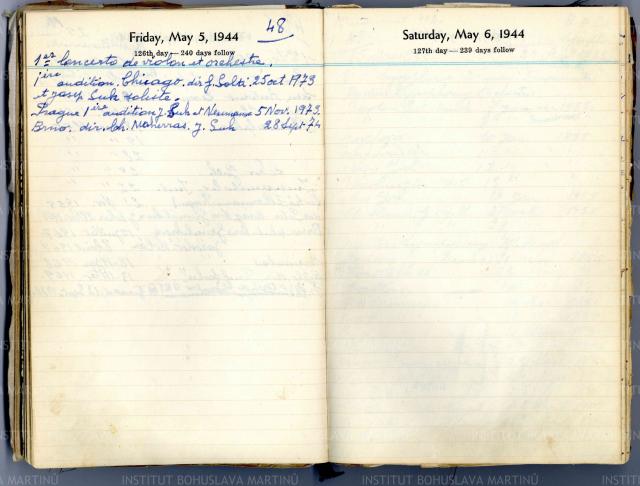 Friday, May 5, 1944
48
126th day—240 days follow
1er Concerto de violon et orchestre.
1ière audition. Chicago. dir. G. Solti. 25 oct 1973
et Josep Suk soliste.
Prague 1ière audition J. Suk et Neumann 5 Nov. 1973.
Brno. dir. Ch. J. Suk 28 Sept 74
Saturday, May 6, 1944
127th day—239 days follow
INSTITUT BOHUSLAVA MARTINŮ